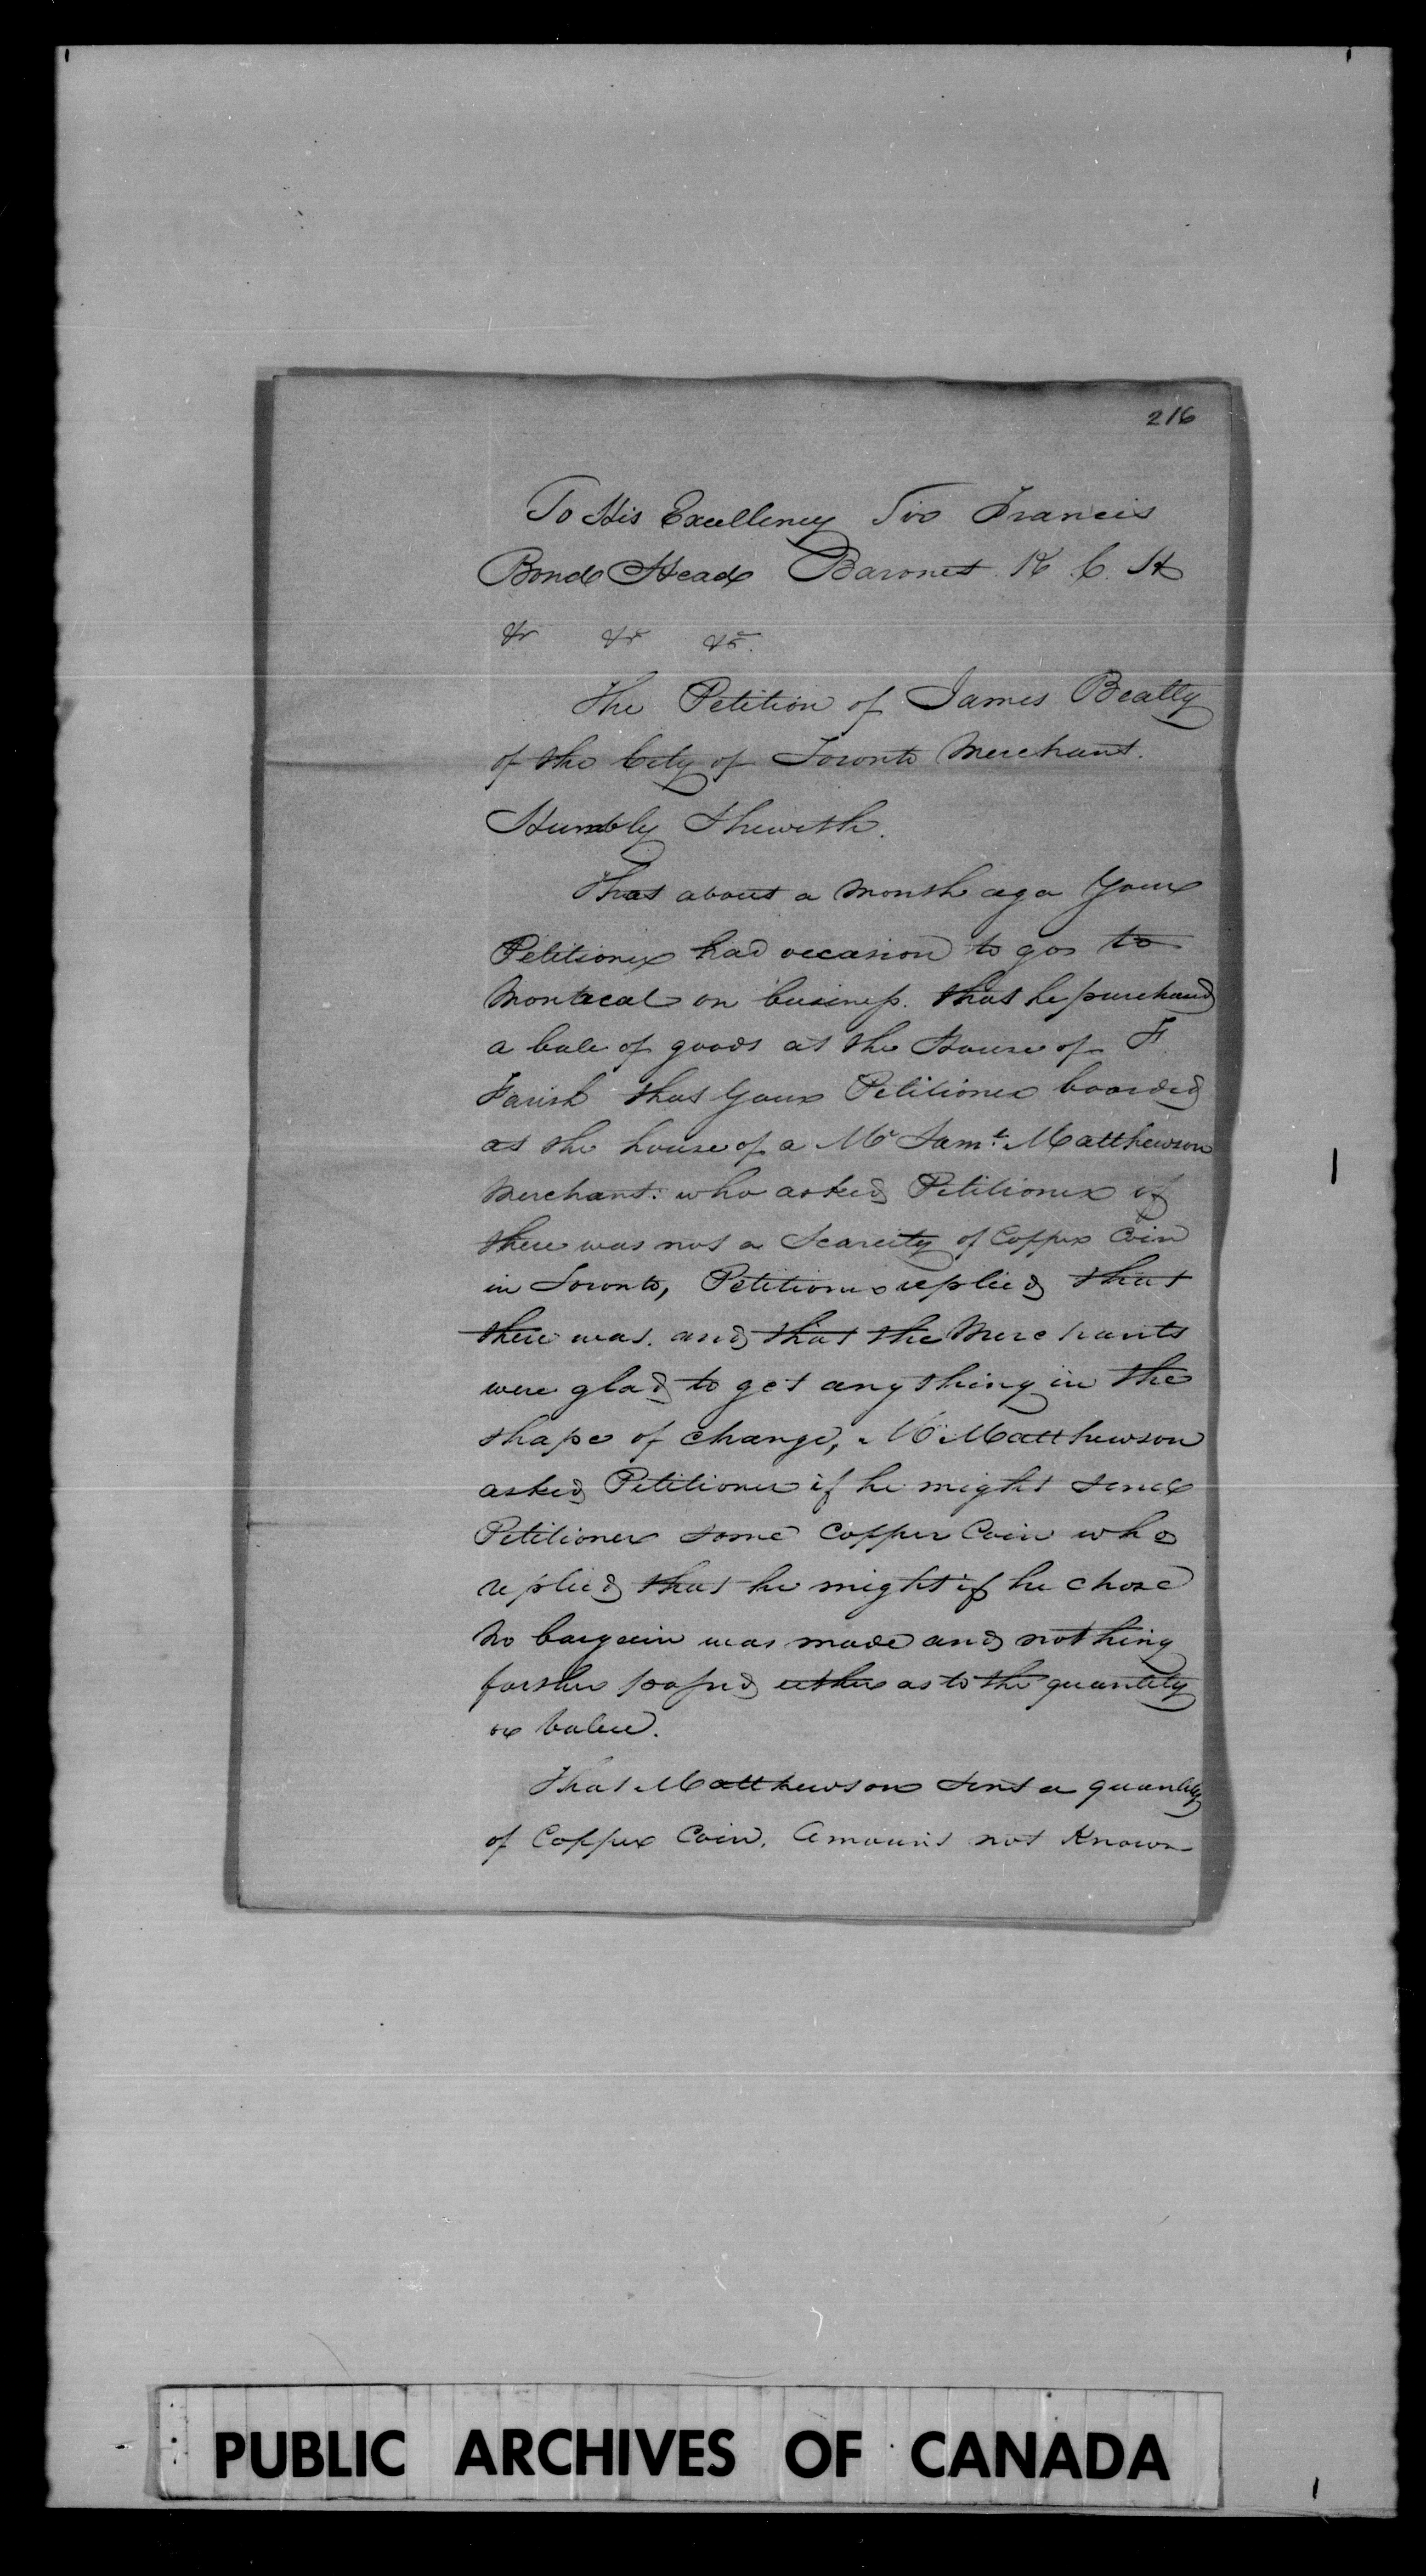 216
To His Excellency Sir Francis
Bond Head Baronet K. C. H
&c &c &c.
The Petition of James Beatty
of the City of Toronto Merchant.
Humbly Sheweth.
That about a Month ago Your
Petitioner had occasion to go to
Montreal on business. that he purchased
a bale of goods at the House of F.
Farish that Your Petitioner boarded
at the house of a Mr Saml. Matthewson
Merchant. who asked Petitioner if
there was not a Scarcity of Copper Coin
in Toronto, Petitioner replied that
there was. and that the Merchants
were glad to get any thing in the
shape of change, Mr Matthewson
asked Petitioner if he might send
Petitioner some Copper Coin who
replied that he might if he chose
No bargain was made and nothing
further passed either as to the quantity
or value.
That Matthewson sent a quantity
of Copper Coin. Amount not Known
PUBLIC ARCHIVES OF CANADA